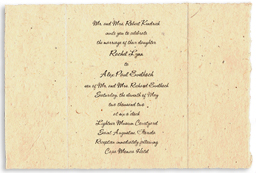 Mr. and Mrs. Robert Kindrick
invite you to celebrate
the marriage of their daughter
Rachel Lynn
to
Alex Paul
son of Mr. and Mrs. Michael
Saturday, the eleventh of May
two thousand two
at six o'clock
Lightner Museum Courtyard
Saint Augustine, Florida
Reception immediately following
Casa Monica Hotel